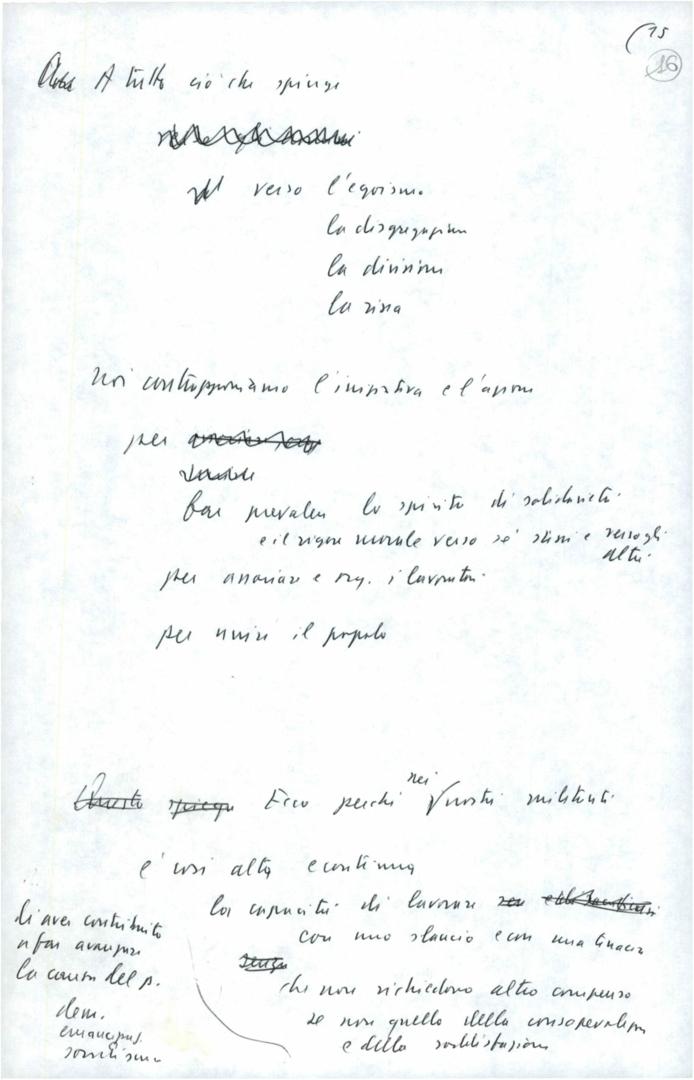 (15
16
A tutto ciò che spinge
verso l'egoismo
la disgregazione
la divisione
la rissa
noi contrapponiamo l'iniziativa e l'azione
per
far prevalere lo spirito di solidarietà
e il rigore morale verso sé stessi e verso gli
altri.
per associare e org. i lavoratori
per unire il popolo
Questo spiega Ecco perché nei nostri militanti
è così alta e continua
la capacità di lavorare
con uno slancio e con una tenacia
senza
che non richiedono altro compenso
se non quello della consapevolezza
e della soddisfazione
di aver contribuito
a far avanzare
la causa del p.
dem.
emancipaz.
socialismo